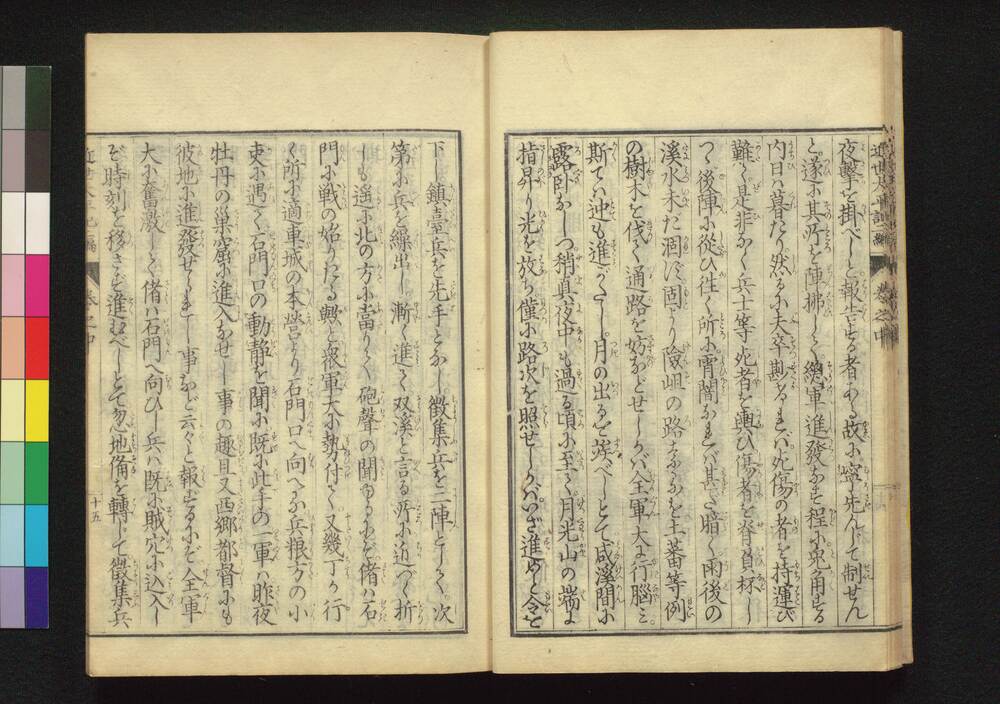 近世太平記 編 巻之中
夜撃を掛べしと報告する者ある故に寧先んじて制せん
と遂に其所を陣拂して總軍進發なす程に兎角する
内日は暮たり然るに大卒勘るまでは死傷の者を持運び
難く是非なく兵士等死者を輿ひ傷者を脊負杯し
つゝ後陣に從ひ往く所に宵闇なれば甚だ暗く雨後の
溪水未だ涸ず固より險岨の路なるを土蕃等例
の樹木を伐て通路を妨などせしかば全軍大に行腦み
斯ては迚も進がたし月の出るを俟べしとて咸溪間に
露臥なしつ稍真夜中も過る頃に至て月光山の端に
指昇り光を放ち僅に路次を照せしかばいざ進めと令を
下し鎮臺兵を先手となし徴集兵を二陣として次
第に兵を繰出し漸く進て双溪と言る所に近づく折
しも遥に北の方に當りて砲聲の聞ゆるにぞ偖は石
門に戦の始りたる歟と衆軍大に勢付さて又幾丁か行
く所に適車城の本營より石門口へ向へる兵粮方の小
吏に遇て石門口の動静を聞に既に此手の一軍は昨夜
牡丹の巣窟に進入なせし事の趣且又西郷都督にも
彼地に進發せられし事など云々と報ずるにぞ全軍
大に奮激して偖は石門へ向ひし兵は既に賊穴に込入し
ぞ時刻を移さず進むべしとて忽地備を轉して徴集兵
近世太平記 編 巻之中 十五